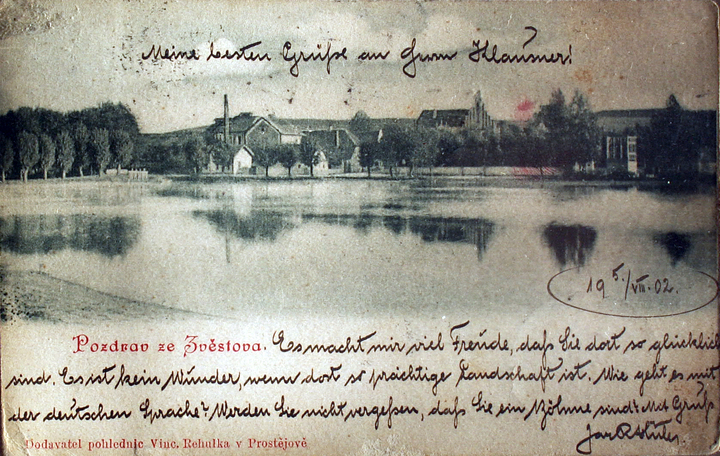 Meine besten Grüße an Herrn Klausner!
19 5./VIII. 02.
Pozdrav ze Zvěstova. Es macht mir viel Freude, daß Sie dort so glücklich
sind. Es ist kein Wunder, wenn dort so prächtige Landschaft ist. Wie geht es mit
der deutschen Sprache? Werden Sie nicht vergeßen, daß Sie ein Böhme sind? Mit Gruß
Dodavatel pohlednic Vinc. Rehulka v Prostějově